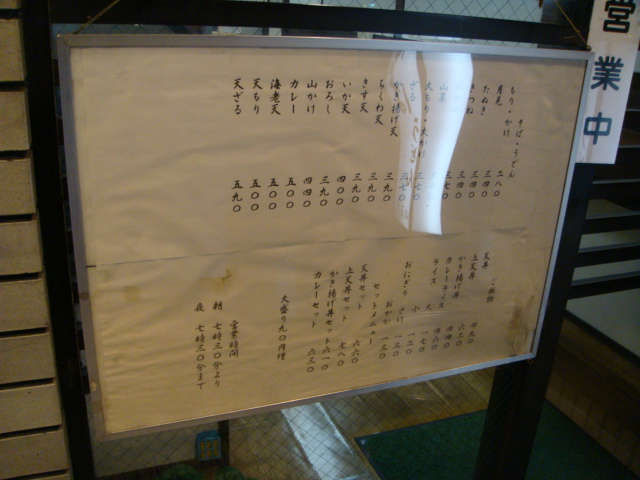 営業中
そば・うどん
もり・かけ 二八〇
月見 三四〇
たぬき 三四〇
きつね 三四〇
山菜 三七〇
大もり・大かけ
ざる 三七〇
かき揚げ天 三九〇
ちくわ天 三九〇
きす天 三九〇
いか天 四〇〇
おろし 三九〇
山かけ 四四〇
カレー 五〇〇
海老天 五〇〇
天もり 五〇〇
天ざる 五九〇
ご飯物
天丼
上天丼
かき揚げ丼
カレーライス
ライス 大 一七〇
小 一二〇
おにぎり さけ 一三〇
おかか 一二〇
セットメニュー
天丼セット 六六〇
上天丼セット 七八〇
かき揚げ丼セット 六一〇
カレーセット 六三〇
大盛り九〇円増
営業時間
朝 七時三〇分より
夜 七時三〇分まで